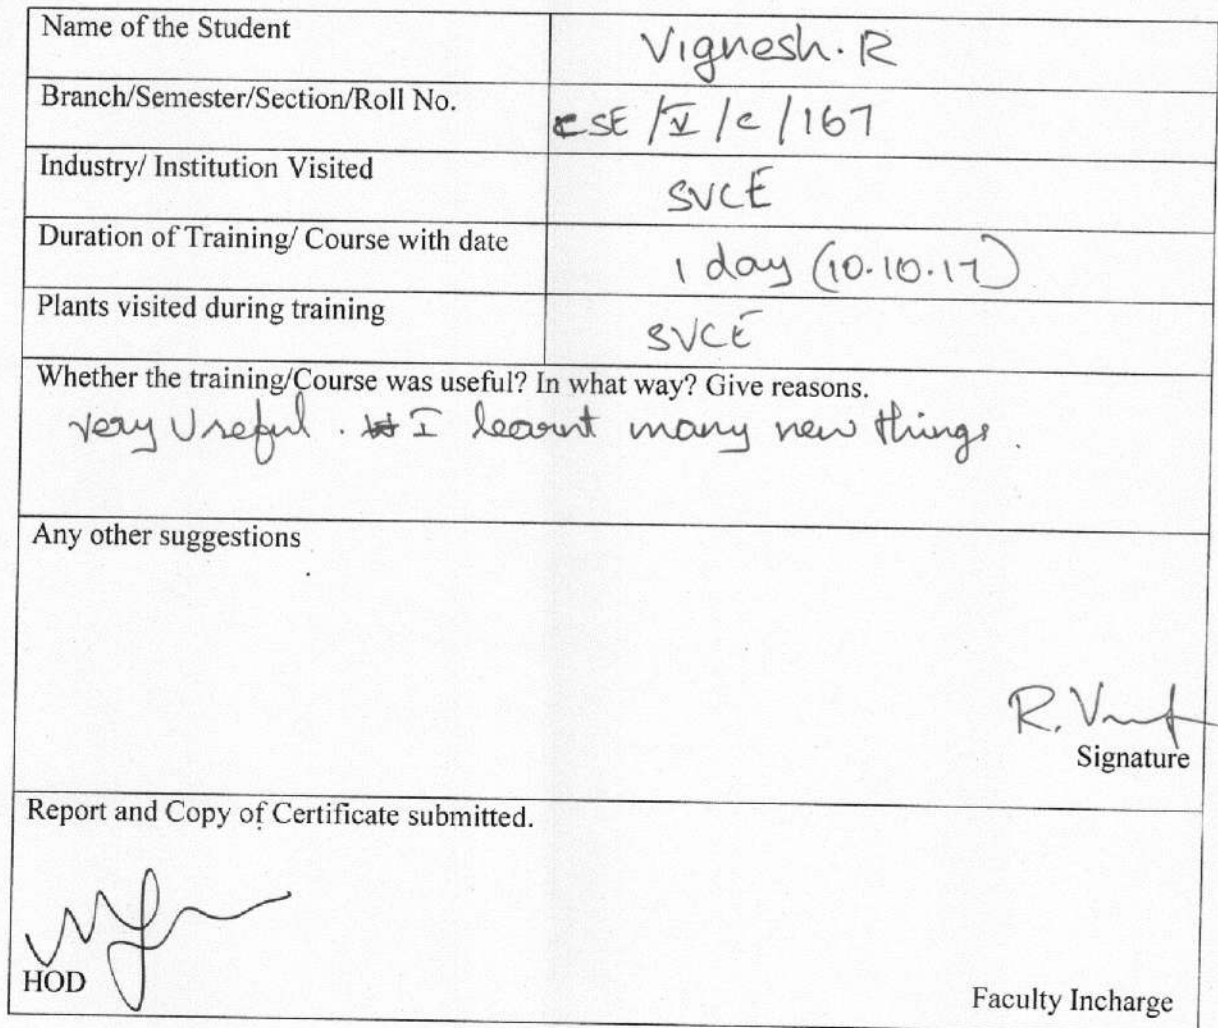 Name of the Student Vignesh. R
Branch/Semester/Section/Roll No. CSE /V /c /167
Industry/ Institution Visited SVCE
Duration of Training/ Course with date 1 day (10.10.17)
Plants visited during training SVCE
Whether the training/Course was useful? In what way? Give reasons.
very Useful. I learnt many new things.
Any other suggestions
R.
Signature
Report and Copy of Certificate submitted.
HOD Faculty Incharge